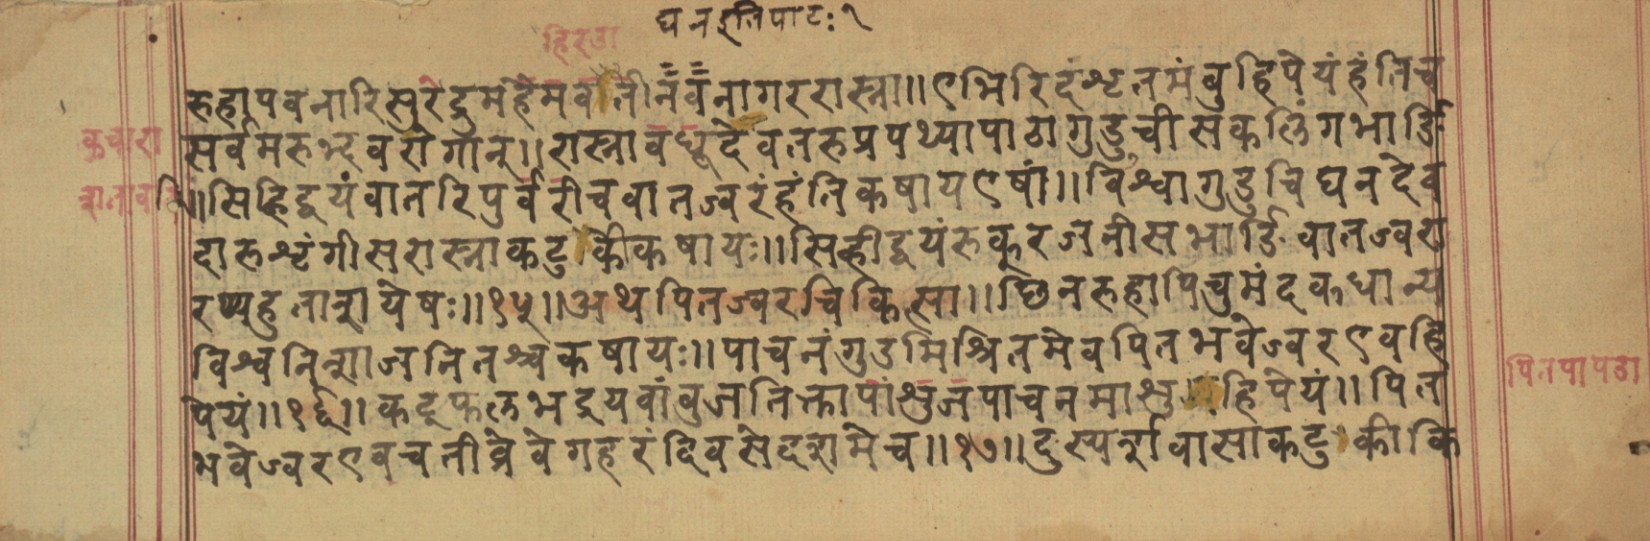 घनइतिपाटः१
हिरडा
रुहापवनारिसुरेद्रुमहेमवतीनवनागररास्ना॥एभिरिदंशृतमंबुहिपेयंहंतिच
सर्वमरुभ्द्वरोगान्॥रास्नावघूदेवतरुप्रपथ्यापाठागुडुचीसकलिंगभार्ङि
॥सिंहिद्वयंवातरिपुर्वरीचवातज्वरंहंतिकषायएषां॥विश्वागुडुचिघनदेव
दारुशृंगीसरास्नाकटुकीकषायः॥सिन्हीद्वयंरुकूरजनीसभार्ङिवातज्वरा
रण्यहुतानायेषः॥१५॥अथपितज्वरचिकित्सा॥छिनरुहापिचुमंदकधान्य
विश्वनिशाजनितश्चकषायः॥पाचनंगुडमिश्रितमेवपितभवेज्वरएवहि
पेयं॥१६॥कटूफलभद्रयवांबुजतिक्तापांशुजपाचनमाशुहिपेयं॥पित
भवेज्वरएवचतीव्रेवेगहरंदिवसेदशमेच॥१७॥दुस्पर्शावासाकटुकीकि
कचोरा
पितपापडा